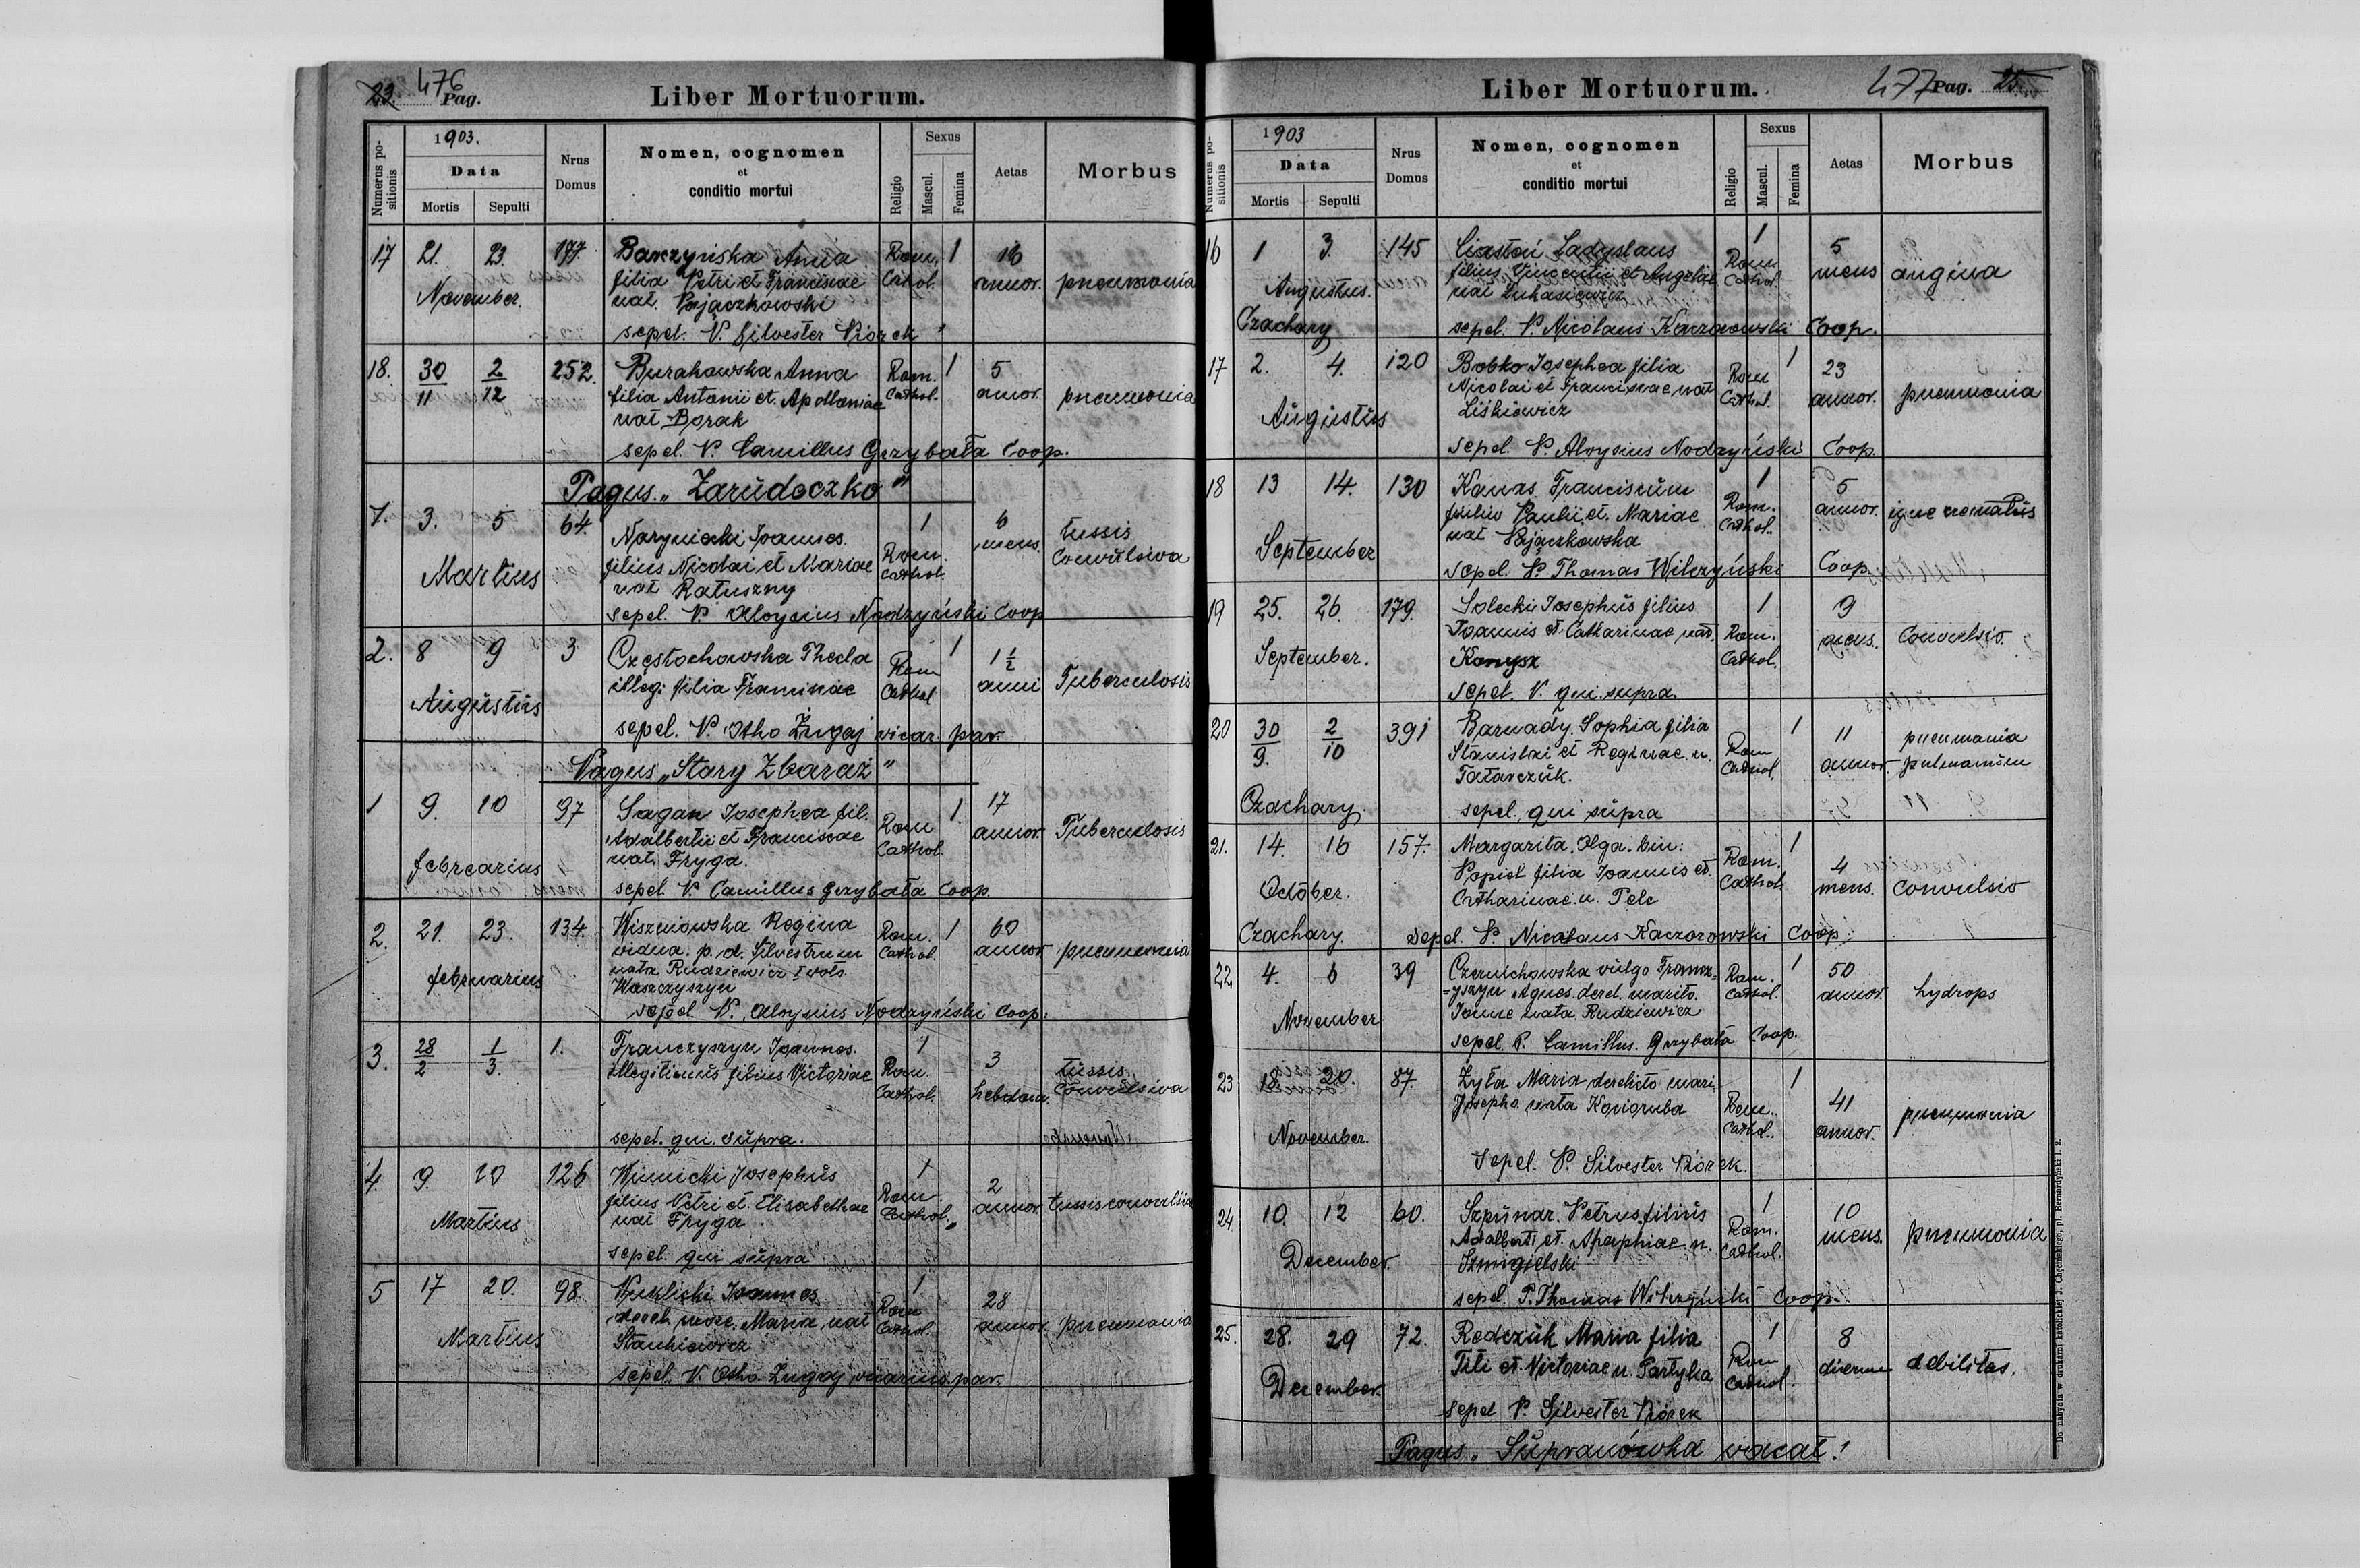 23. 476 Pag.
Liber Mortuorum.
Numerus positionis
1903.
Data
Mortis Sepulti
Nrus Domus
Nomen, cognomen
et
conditio mortui
Religio
Sexus
Mascul. Femina
Aetas
Morbus
17 21. 23. 177. Barczyńska Anna Rom. 1 16
filia Petri et Franciscae Cathol. annor. pneumonia
November. nat. Pajączkowski
sepel. P. Silvester Piórek
18. 30/11 2/12 252. Burakowska Anna Rom. 1 5
filia Antonii et Apolloniae Cathol. annor. pneumonia
nat Borak
sepel. P. Camillus Grzybała Coop.
Pagus „Zarudeczko"
1. 3. 5 64. Naryniecki Joannes 1 6 tussis
Martius filius Nicolai et Mariae Rom. Cathol. mens. Convulsiva
nat Ratuszny
sepel. P. Aloysius Nodzyński Coop
2. 8 9 3 Częstochowska Thecla Rom 1 1 1/2
Augustus illeg. filia Franciscae Cathol anni Tuberculosis
sepel. P. Otho Żugaj vicar. par.
Pagus „Stary Zbaraż"
1 9. 10 97 Sagan Josephea fil. Rom 1. 17
Adalbertii et Franciscae Cathol annor. Tuberculosis
februarius nat. Fryga.
sepel. P. Camillus Grzybała Coop.
2. 21. 23. 134. Wiszniowska Regina Rom. 1 60
vidua p. d. Silvestrum Cathol. annor. pneumonia
februarius nata Rudziewicz I vots
Waszczyszyn
sepel. P. Aloysius Nodzyński Coop.
3. 28/2 1/3. 1. Franczyszyn Joannes. 1 3 tussis
illegitimus filius Victoriae Rom. Cathol. hebdom. Convulsiva
sepel. qui supra.
4. 9. 10 126 Winnicki Josephus 1 2
filius Petri et Elisabethae Rom. Cathol. annor. tussis convulsiva
Martius nat Fryga
sepel. qui supra
5 17 20. 98. Joannes 1 28
derel. uxore Maria nat Rom Cathol. annor. pneumonia
Martius Stankiewicz
sepel. P. Otho Żugaj vicarius par.
Liber Mortuorum.
477 Pag. 25.
Numerus positionis
1903
Data
Mortis Sepulti
Nrus Domus
Nomen, cognomen
et
conditio mortui
Religio
Sexus
Mascul. Femina
Aetas
Morbus
16 1 3. 145 Ciastoń Ladyslaus 1 5
filius Vincentii et Angelae Rom Cathol. mens angina
Augustus. nat Łukasiewicz
Czachary sepel. P. Nicolaus Kaczorowski Coop.
17 2. 4. 120 Bobko Josephea filia 1 23
Nicolai et Franciscae nat Rom Cathol. annor. pneumonia
Augustus Liśkiewicz
sepel. P. Aloysius Nodzyński Coop
18 13 14. 130 Franciscum 1 5
filius Paulii et. Mariae Rom. Cathol. annor. igne crematus
September nat Pajączkowska
sepel. P. Thomas Wilczyński Coop.
19 25. 26. 179. Solecki Josephus filius 1 9
Joannis et Catharinae nat. Rom. mens. Convulsio.
September. Konysz Cathol.
sepel. P. qui supra.
20 30/9. 2/10 391 Barnady Sophia filia 1 11 pneumonia
Stanislai et Reginae n. Rom Cathol. annor. pulmonum
Tatarczuk.
Czachary. sepel. qui supra
21. 14. 16 157. Margarita, Olga bin: 1
Popiel filia Joannis et. Rom. Cathol 4
October. Catharinae n. Pelc mens. Convulsio
Czachary. sepel. P. Nicolaus Kaczorowski Coop.
22 4. 6 39 Czernichowska vulgo Francz= Rom. 1 50
=yszyn Agnes derel. marito. Cathol. annor. hydrops
November Joanne nata Rudziewicz
sepel. P. Camillus. Grzybała Coop.
23 18. 20. 87. Żyła Maria derelicto mari. 1 41
Josepho, nata Kozigruba Rom. Cathol. annor. pneumonia
November.
sepel. P. Silvester Piórek.
24 10. 12 60. Szpunar Petrus filius 1 10
Adalberti et. Agaphiae n. Rom. Cathol. mens. pneumonia
December. Szmigielski
sepel. P. Thomas Wilczyński Coop.
25. 28. 29 72. Redczuk Maria filia 1 8
Titi et. Victoriae n. Partyka Rom Cathol. dierum debilitas.
December.
sepel P. Silvester Piórek
Pagus „Supranówka vacat!
Do nabycia w drukarni katolickiej J. Chęcińskiego, pl. Bernardyński l. 2.